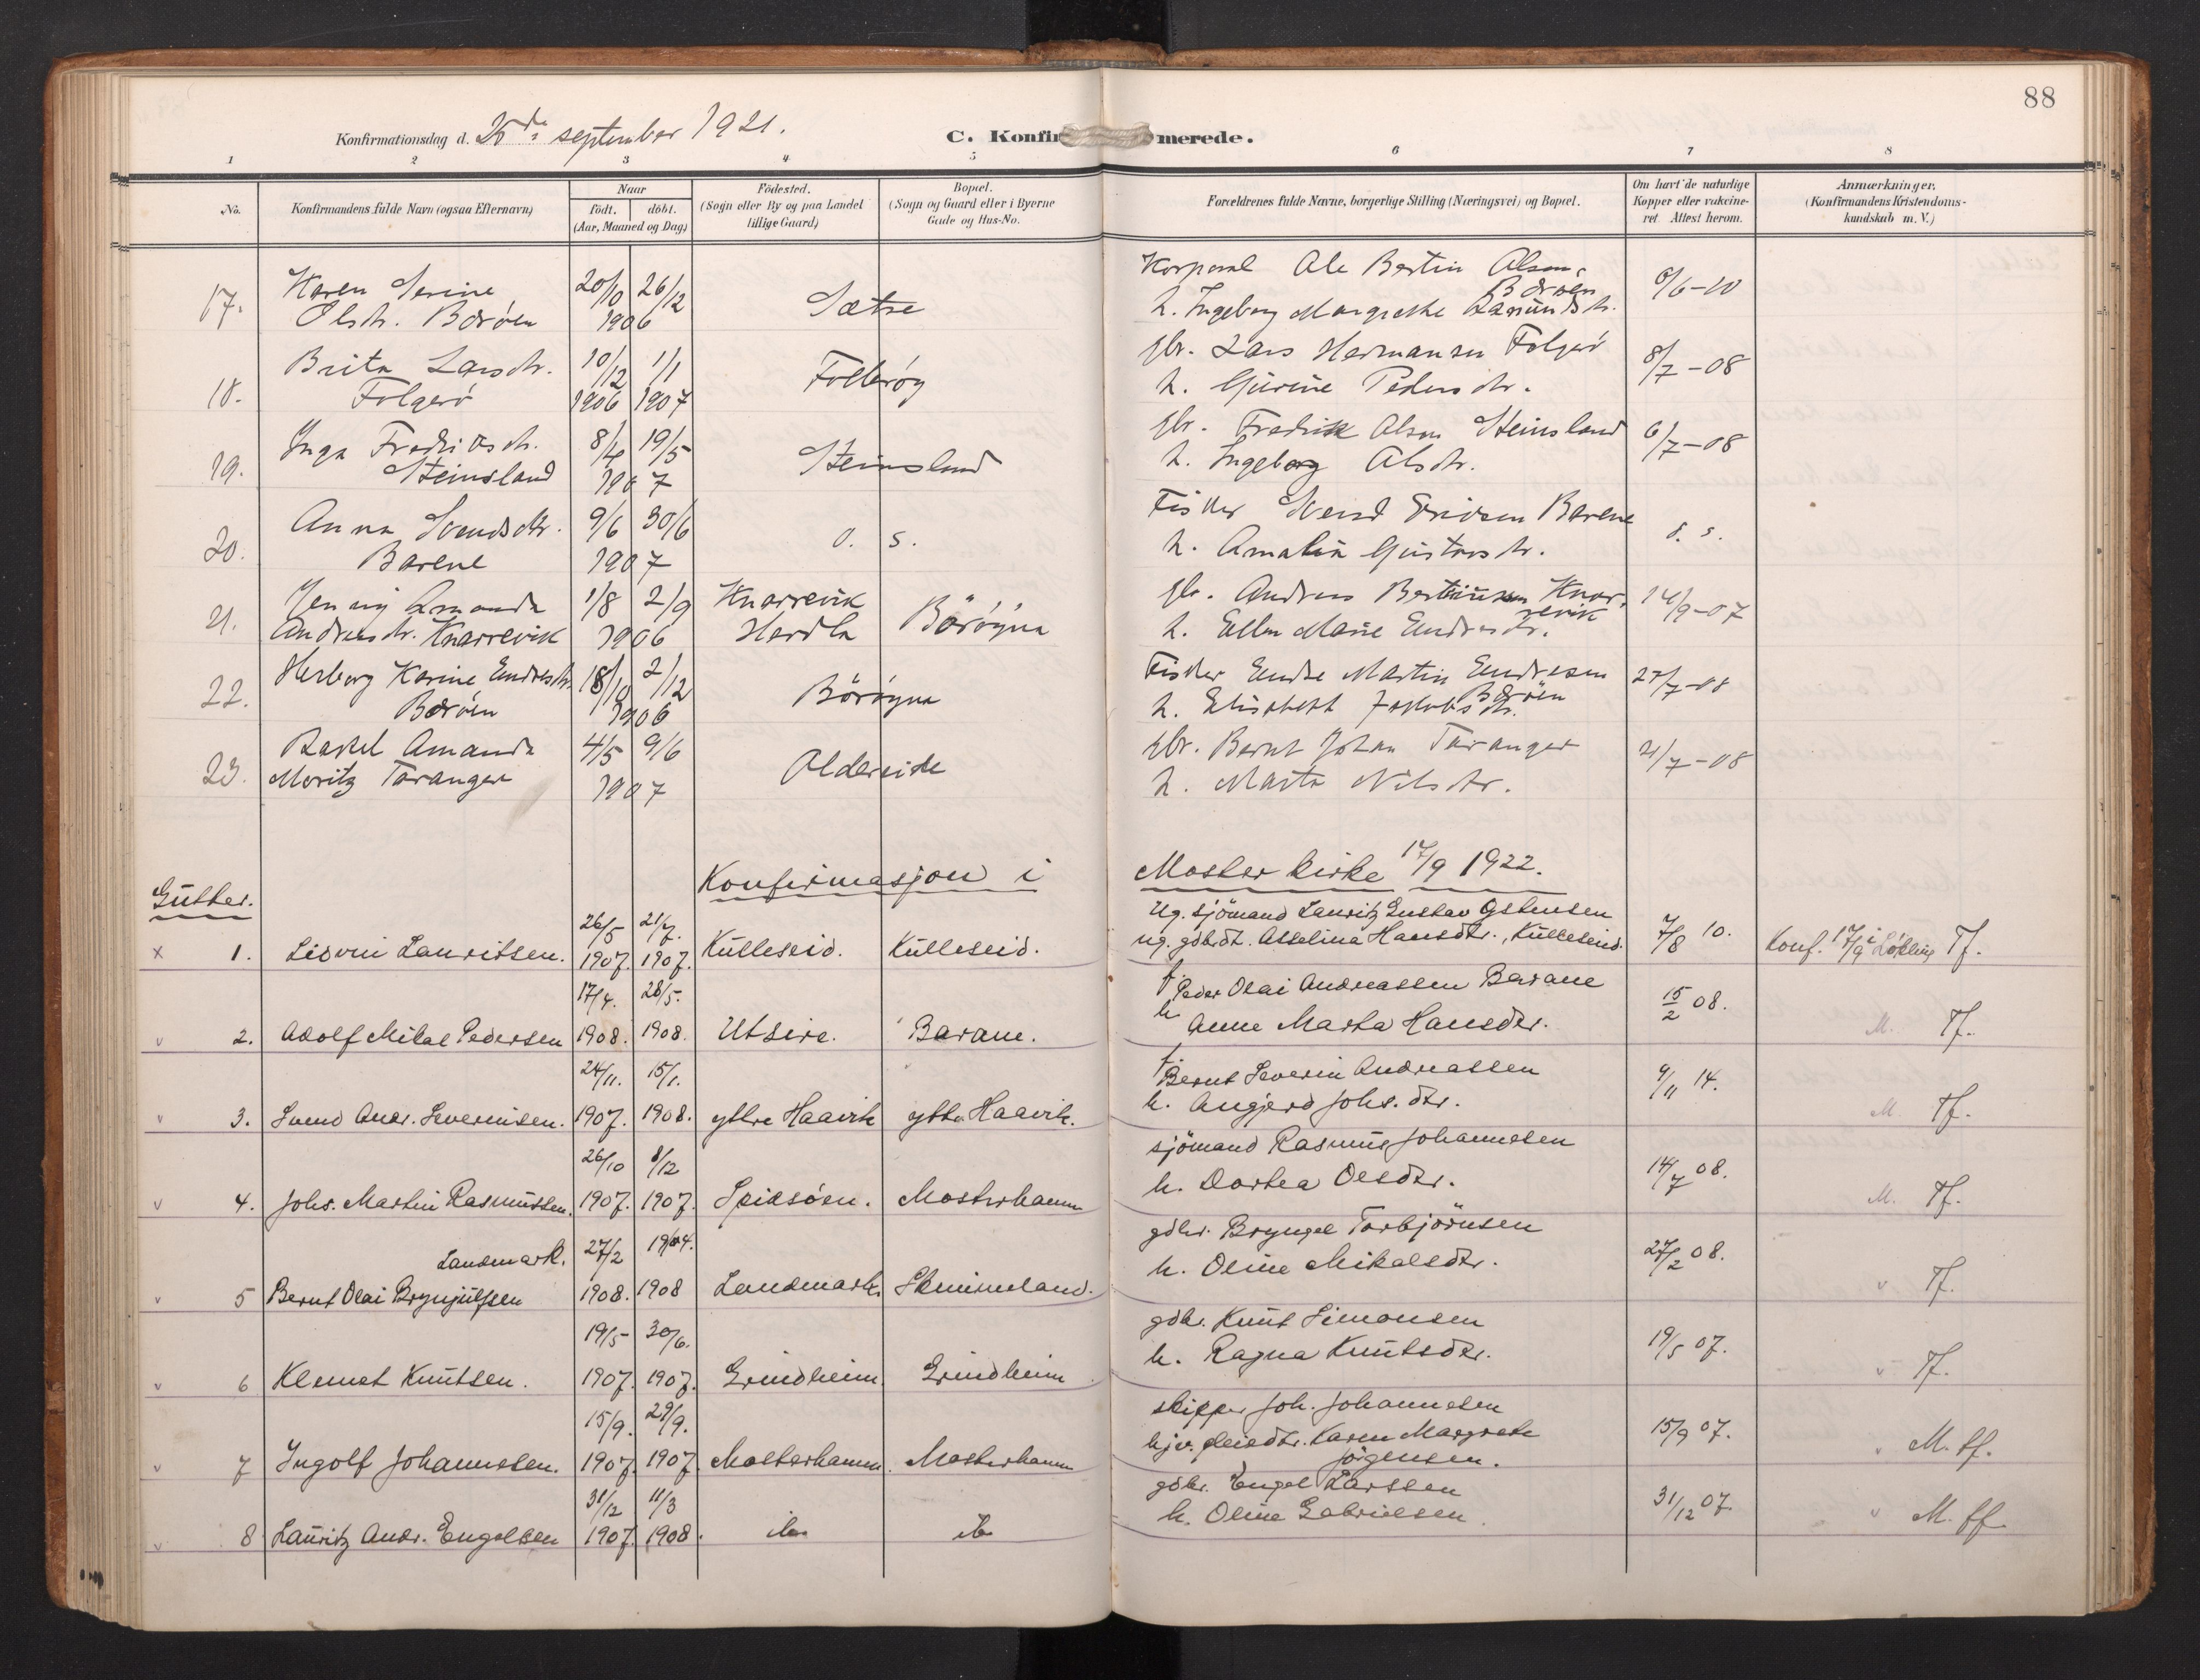 88
Konfirmationsdag d. 25de september 1921.
C. Konfir merede.
1 2 3 4 5 6 7 8
No.
Konfirmandens fulde Navn (ogsaa Efternavn)
Naar
födt. döbt.
(Aar, Maaned og Dag)
Födested.
(Sogn eller By og paa Landet
tillige Gaard)
Bopæl.
(Sogn og Gaard eller i Byerne
Gade og Hus-No.
Forældrenes fulde Navne, borgerlige Stilling (Næringsvei) og Bopæl.
Om havt de naturlige
Kopper eller vakcine-
ret Attest herom.
Anmærkninger.
(Konfirmandens Kristendoms-
kundskab m. V.)
17. Karen Serine 20/10 26/12 Sætre Korporal Ole Bertin Olsen, Børøen 8/6-10
Olsdtr. Børøen 1906 h. Ingeborg Margrethe Rasmusdtr.
18. Brita Larsdtr. 10/12 1/1 Follerøy gbr. Lars Hermansen Folgerö 8/7-08
Folgerö 1906 1907 h. Gurine Pedersdtr.
19. Inga Fredriksdtr. 8/4 19/5 Steinsland gbr. Fredrik Olsen Steinsland 6/7-08
Steinsland 1907 h. Ingeborg Olsdtr.
20. Anna Svendsdtr. 9/6 30/6 o. s. Fisker Svend Eriksen Barene o. s.
Barene 1907 h. Amalia Gustavsdtr.
21. Jenny Amanda 1/8 2/9 Knarrevik Börøyna gbr. Andreas Bertinusen Knar- 14/9-07
Andreasdtr. Knarrevik 1906 Herdla h. Ellen Marie Endresdtr. revik
22. Herborg Karine Endresdtr. 18/10 2/12 Börøyna Fisker Endre Martin Endresen 27/7-08
Børøen 1906 h. Elisabeth Jakobsdtr. Børøen
23. Rakel Amanda 4/5 9/6 Oldereide gbr. Bernt Johan Taranger 21/7-08
Moritz Taranger 1907 h. Marta Nilsdtr.
Konfirmasjon i Moster kirke 17/9 1922.
Gutter.
26/5 21/7. Ug. sjömand Lauritz Gustav Østensen
x 1. Lidvin Lauritsen. 1907. 1907. Kulleseid. Kulleseid. ug. gdbrdt. Asselina Hansdtr., Kulleseid. 7/8 10. Konf. 17/9 i Tf.
17/4. 28/5. f. Peder Olai Andreassen Barane
v 2. Adolf Mikal Pedersen 1908. 1908. Utsire. Barane. h Anne Marta Hansdtr. 15/2 08. M. Tf.
24/11. 15/1. f. Bernt Severin Andreassen
v 3. Svend Andr. Severinsen. 1907. 1908. ytre Haavik ytre Haavik. h. Angjerd Johs. dtr. 9/11 14. M. Tf.
26/10 8/12 sjömand Rasmus Johannesen
v 4. Johs. Martin Rasmussen. 1907. 1907. Spidsöen. Mosterhamn h. Dortea Olsdtr. 14/7 08. M. Tf.
Landmark. 27/2 19/04. gdbr. Bryngel Torbjörnsen
v 5 Bernt Olai Brynjulfsen 1908. 1908 Landmark. Skimmeland. h. Oline Mikalsdtr. 27/2 08. v Tf.
19/5 30/6. gdbr. Knut Simonsen
v 6 Klemet Knutsen. 1907. 1907. Grindheim Grindheim h. Ragna Knutsdtr. 19/5 07. v Tf.
15/9. 29/9. skipper Joh. Johannesen
v 7 Ingolf Johannesen. 1907. 1907. Mosterhamn. Mosterhamn Karen Margrete Jörgensen. 15/9 07. v M. ff.
31/12 11/3 gdbr. Engel Larssen
v 8 Lauritz Andr. Engelsen 1907. 1908. ib. ib. h. Oline Gabrielsen. 31/12 07. v M. ff.